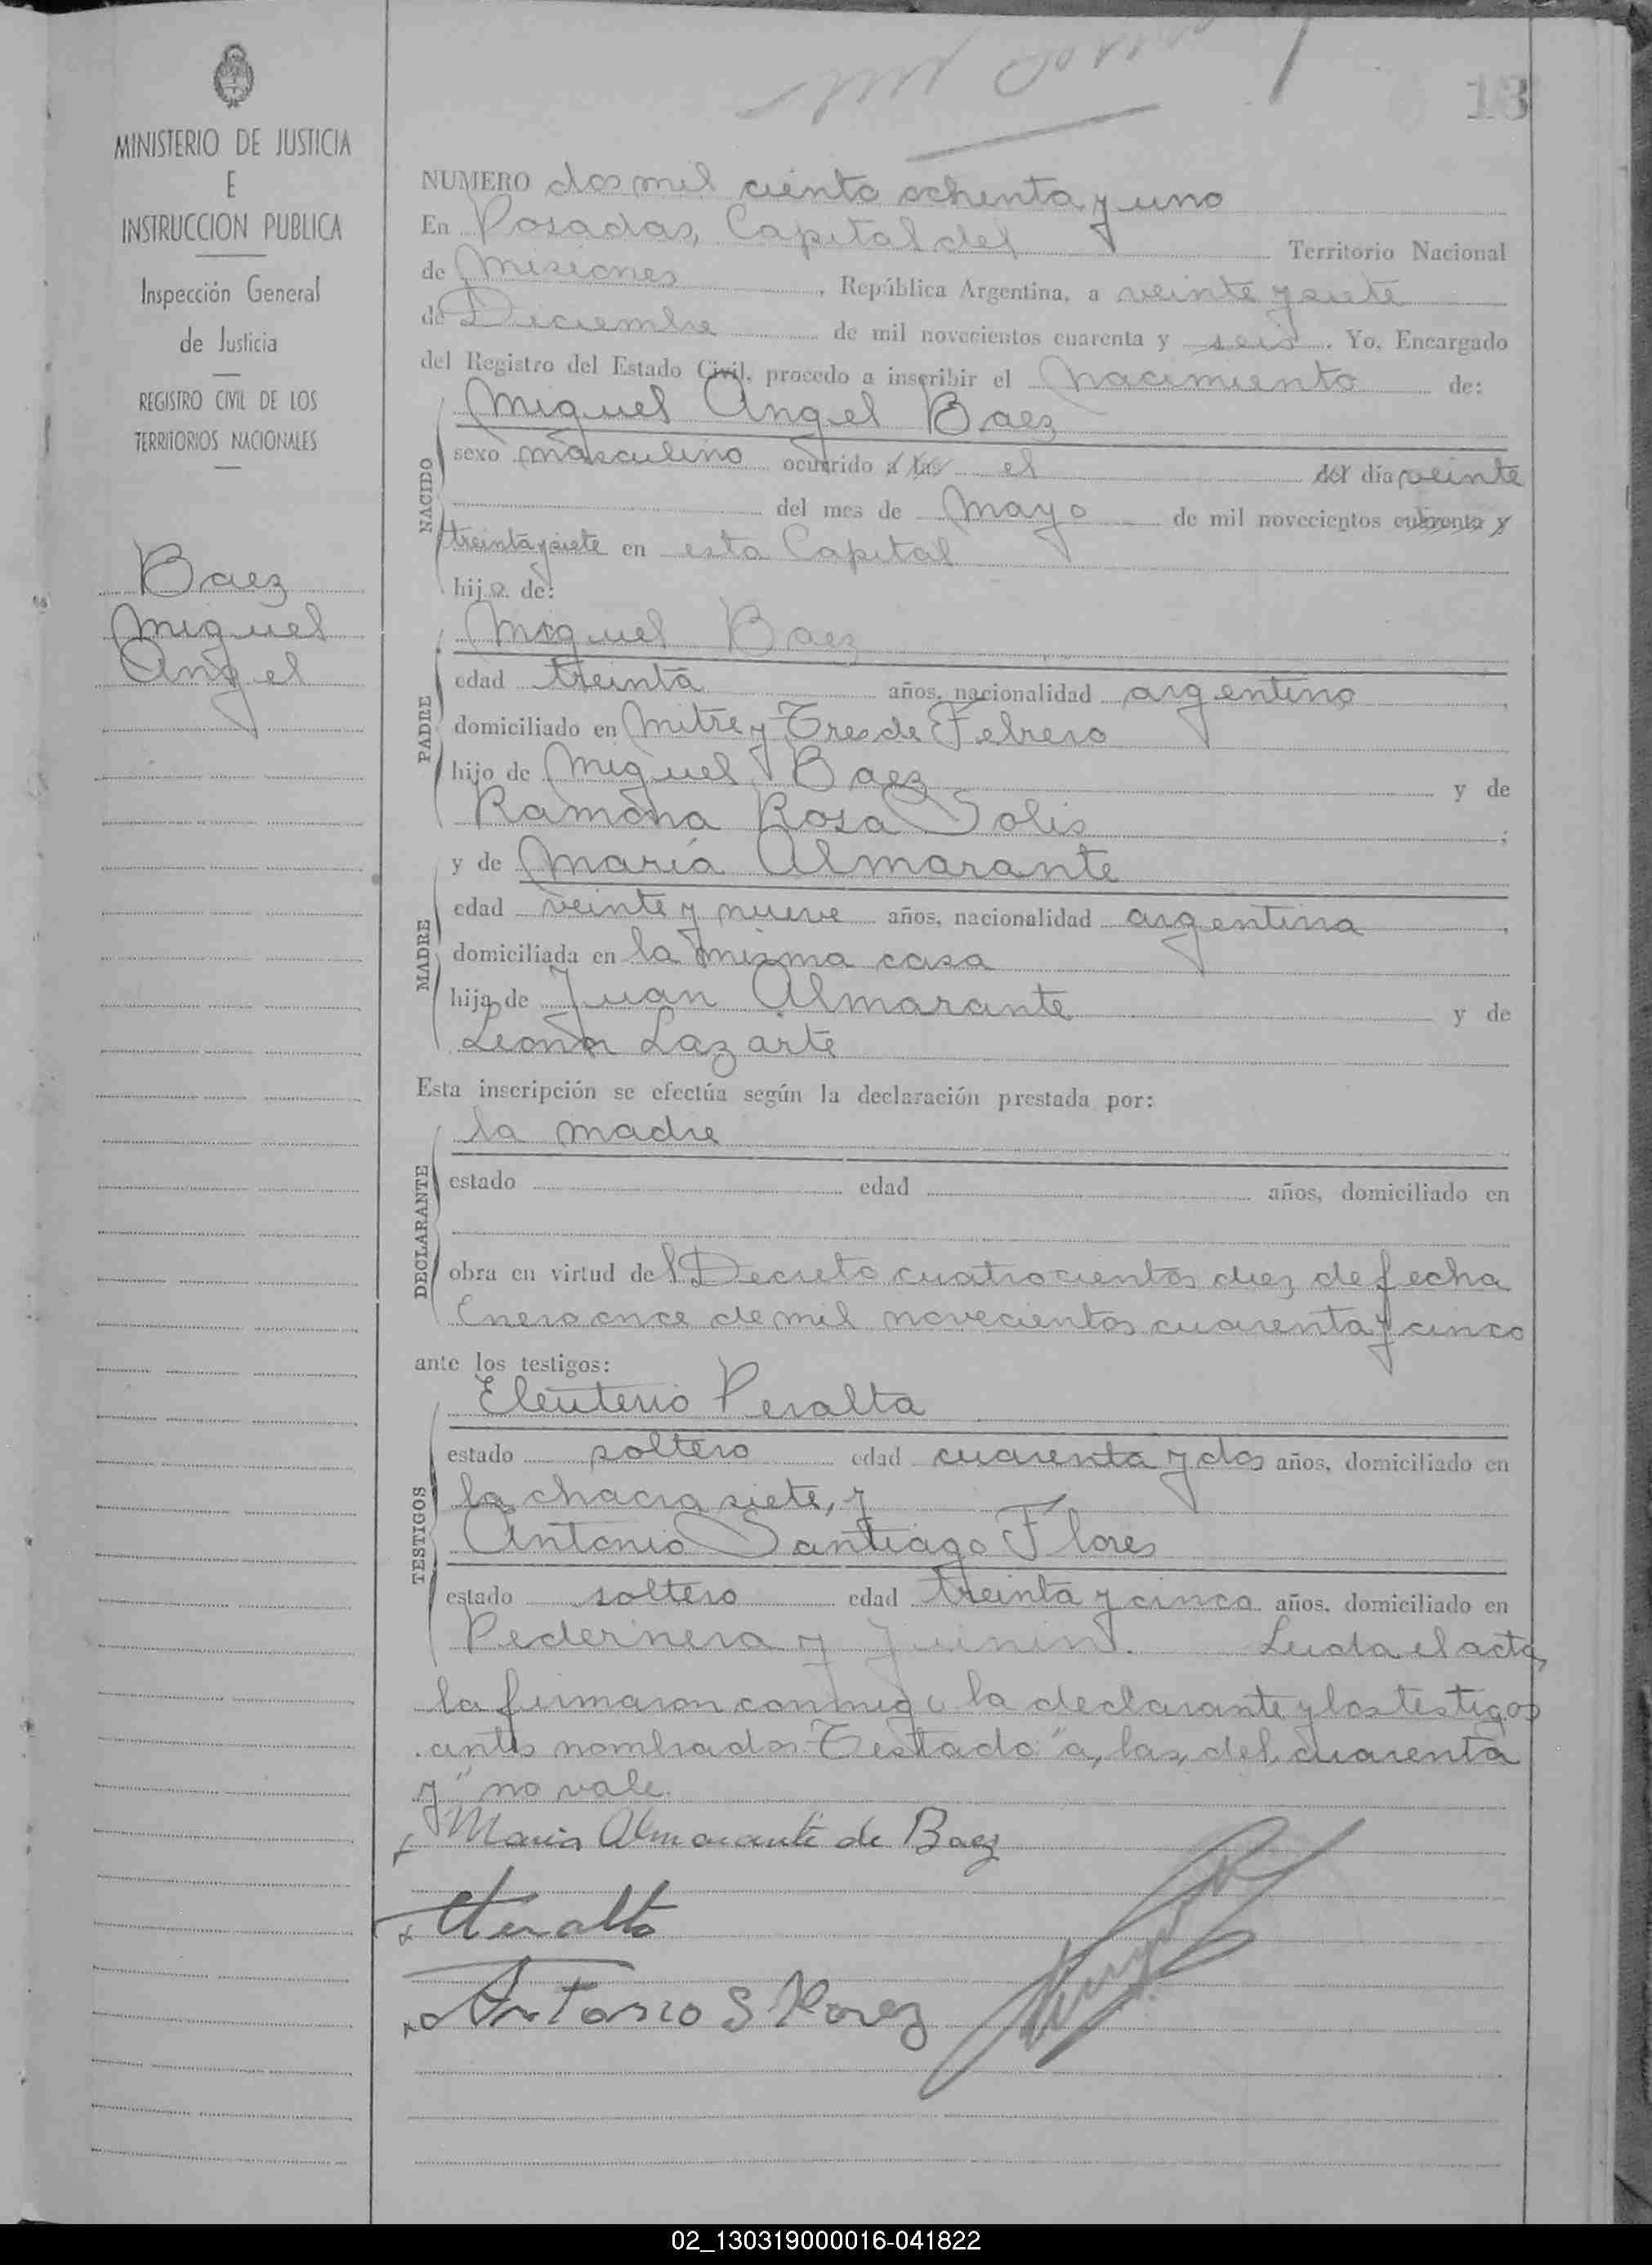 13
MINISTERIO DE JUSTICIA
E
INSTRUCCION PUBLICA
Inspección General
de Justicia
REGISTRO CIVIL DE LOS
TERRITORIOS NACIONALES
Baez
Miguel
Angel
NUMERO dos mil ciento ochenta y uno
En Posadas, Capital del Territorio Nacional
de Misiones, República Argentina, a veinte y siete
de Diciembre de mil novecientos cuarenta y seis. Yo, Encargado
del Registro del Estado Civil, procedo a inscribir el nacimiento de:
NACIDO
Miguel Angel Baez
sexo masculino ocurrido a las el del día veinte
del mes de Mayo de mil novecientos cuarenta y
treinta y siete en esta Capital
hijo de:
PADRE
Miguel Baez
edad treinta años, nacionalidad argentino,
domiciliado en Mitre y Tres de Febrero
hijo de Miguel Baez y de
Ramona Rosa Solis;
MADRE
y de María Almarante
edad veinte y nueve años, nacionalidad argentina,
domiciliada en la misma casa
hija de Juan Almarante y de
Leonor Lazarte
Esta inscripción se efectúa según la declaración prestada por:
DECLARANTE
la madre
estado edad años, domiciliado en
obra en virtud del Decreto cuatrocientos diez de fecha
Enero once de mil novecientos cuarenta y cinco
ante los testigos:
TESTIGOS
Eleuterio Peralta
estado soltero edad cuarenta y dos años, domiciliado en
la chacra siete, y
Antonio Santiago Flores
estado soltero edad treinta y cinco años, domiciliado en
Pedernera y Juinin. Leida el acta,
la firmaron conmigo la declarante y los testigos
antes nombrados. Testado "a, las, del, cuarenta
y" no vale.
Maria Almarante de Baez
EPeralta
Antonio S Florez
02_130319000016-041822